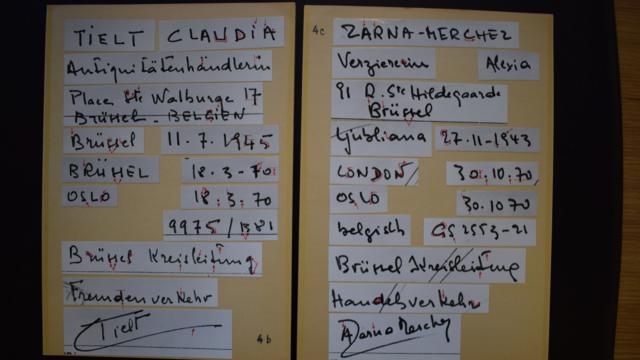 TIELT CLAUDIA
Antiquitätenhändlerin
Place Ste Walburge 17
BRÜSSEL - BELGIEN
Brüssel 11.7.1945
BRÜSSEL 18.3-70
OSLO 18.3.70
9975/1381
Brüssel Kreisleitung
Fremdenverkehr
Tielt
4b
4c
ZARNA-MERCHEZ
Verziererin Alexia
91 R. Ste Hildegaarde
Brüssel
Ljubliana 27.11-1943
LONDON 30.10.70
OSLO 30.10 70
belgisch GS 2553-21
Brüssel Kreisleitung
Handelsverkehr